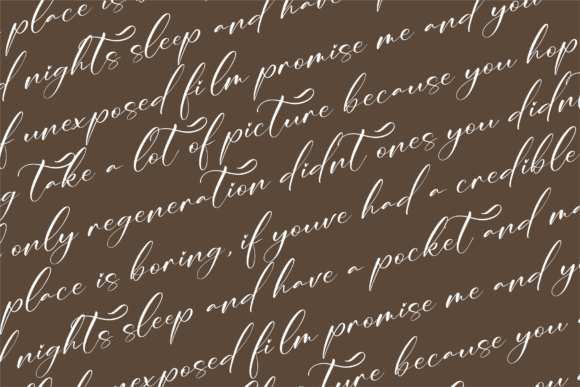 place is
d nights sleep and have
f unexposed film promise me and you
g take a lot of picture because you hop
only regeneration didnt ones you didn
place is boring, if youve had a credible
d nights sleep and have a pocket and ma
unexposed film promise me and y
cture because you